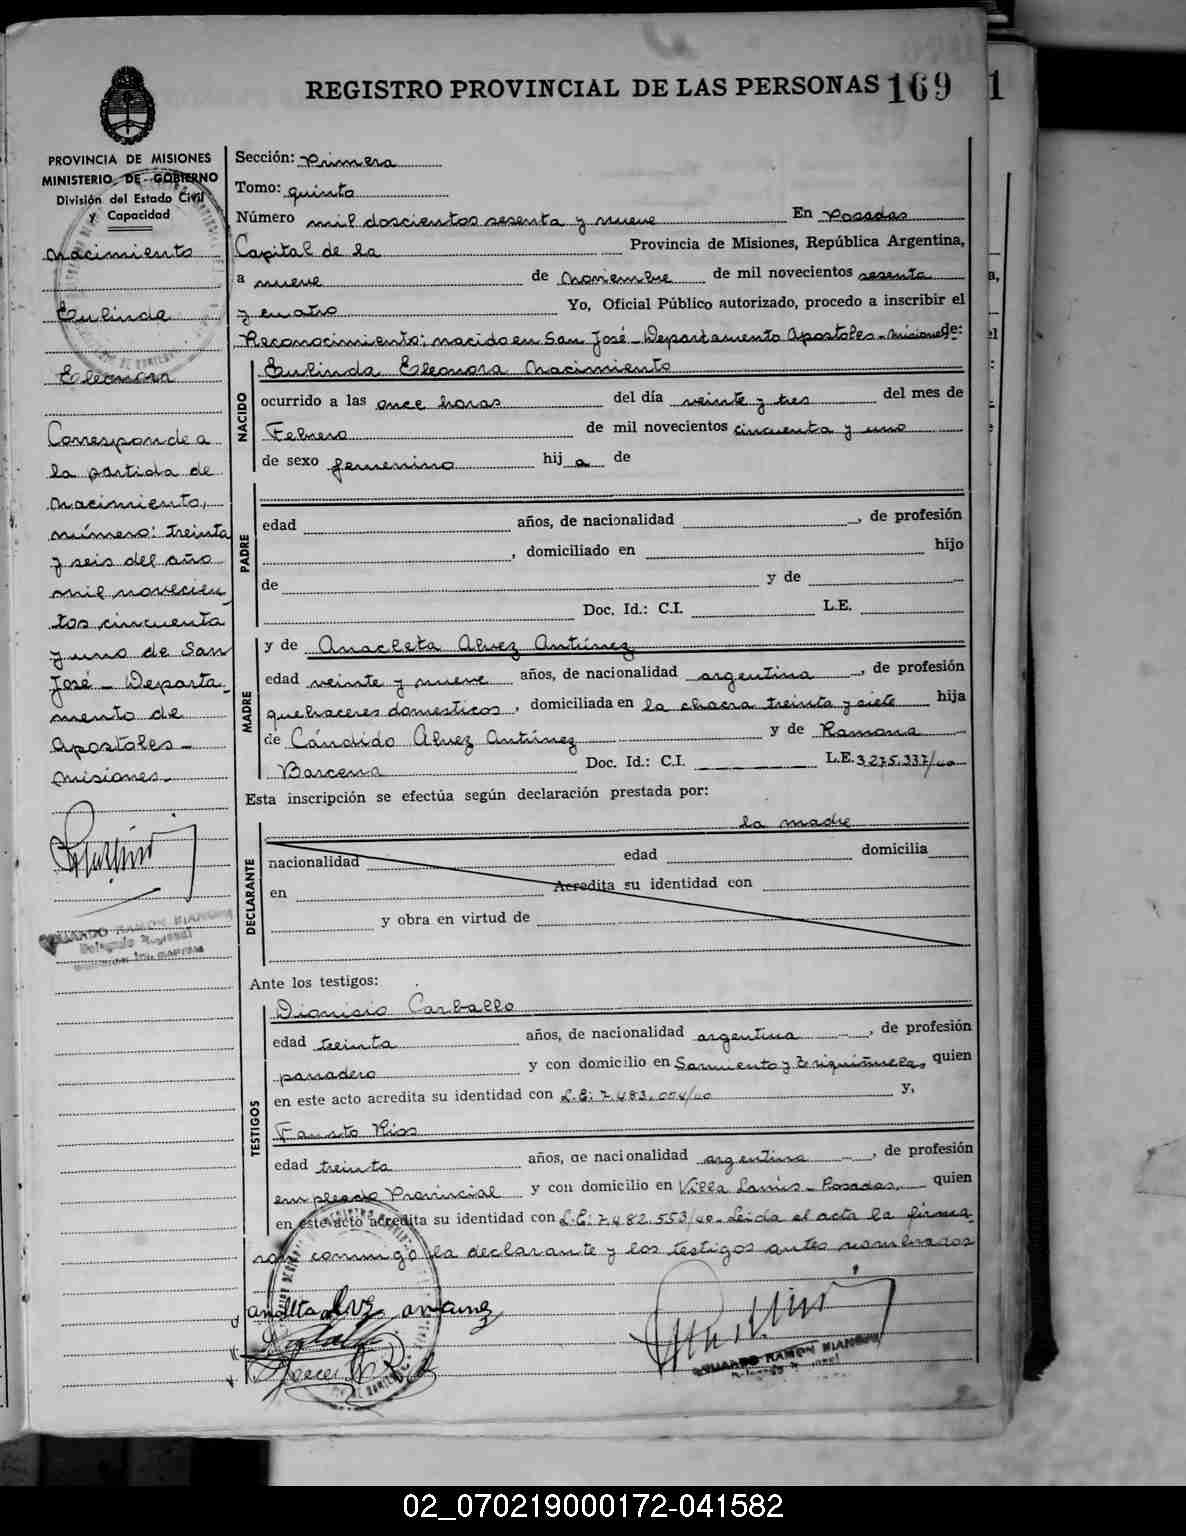 REGISTRO PROVINCIAL DE LAS PERSONAS 169
1
PROVINCIA DE MISIONES
MINISTERIO DE GOBIERNO
División del Estado Civil
y Capacidad
Nacimiento
Eulinda
Eleonora
Corresponde a
la partida de
Nacimiento,
número: treinta
y seis del año
mil novecien-
tos cincuenta
y uno de San
José - Departa-
mento de
Apostoles -
Misiones -
EDUARDO RAMON
Delegado Regional
Sección: Primera
Tomo: quinto
Número mil doscientos sesenta y nueve En Posadas
Capital de la Provincia de Misiones, República Argentina,
a nueve de Noviembre de mil novecientos sesenta
y cuatro Yo, Oficial Público autorizado, procedo a inscribir el
Reconocimiento; nacido en San José - Departamento Apostoles - Misiones de:
NACIDO
Eulinda Eleonora Nacimiento
ocurrido a las once horas del día veinte y tres del mes de
Febrero de mil novecientos cincuenta y uno
de sexo femenino hij a de
PADRE
edad años, de nacionalidad , de profesión
, domiciliado en hijo
de y de
Doc. Id.: C.I. L.E.
MADRE
y de Anacleta Alvez Antúnez
edad veinte y nueve años, de nacionalidad argentina , de profesión
quehaceres domesticos , domiciliada en la chacra treinta y siete hija
de Cándido Alvez Antúnez y de Ramona
Barcena Doc. Id.: C.I. L.E. 3.275.337/
Esta inscripción se efectúa según declaración prestada por:
la madre
DECLARANTE
nacionalidad edad domicilia
en Acredita su identidad con
y obra en virtud de
Ante los testigos:
TESTIGOS
Dionisio Carballo
edad treinta años, de nacionalidad argentina , de profesión
panadero y con domicilio en Sarmiento y , quien
en este acto acredita su identidad con L.E: 7.483.004/ y,
Fausto Rios
edad treinta años, de nacionalidad argentina , de profesión
empleado Provincial y con domicilio en Villa Lanús - Posadas, quien
en este acto acredita su identidad con L.E: 7.482.553/ - Leida el acta la firma-
ron conmigo la declarante y los testigos antes nombrados
EDUARDO RAMON
02_070219000172-041582